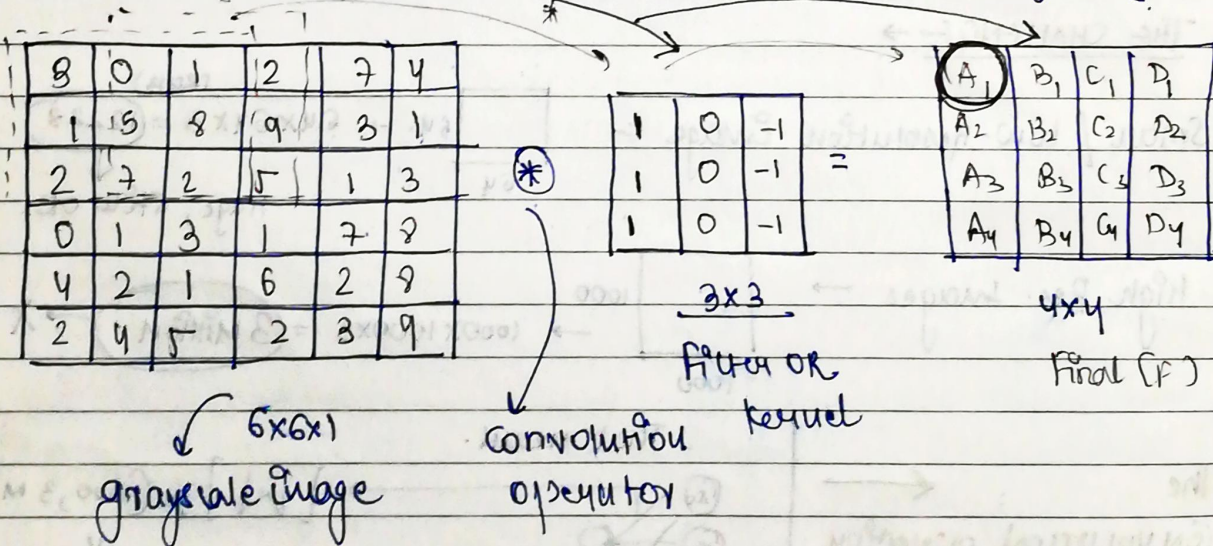 3 0 1 2 7 4
1 5 8 9 3 1
2 7 2 5 1 3
0 1 3 1 7 8
4 2 1 6 2 8
2 4 5 2 3 9
6x6x1
grayscale image
*
*
convolution
operator
1 0 -1
1 0 -1
1 0 -1
3x3
Filter OR
kernel
=
A1 B1 C1 D1
A2 B2 C2 D2
A3 B3 C3 D3
A4 B4 C4 D4
4x4
Final (F)